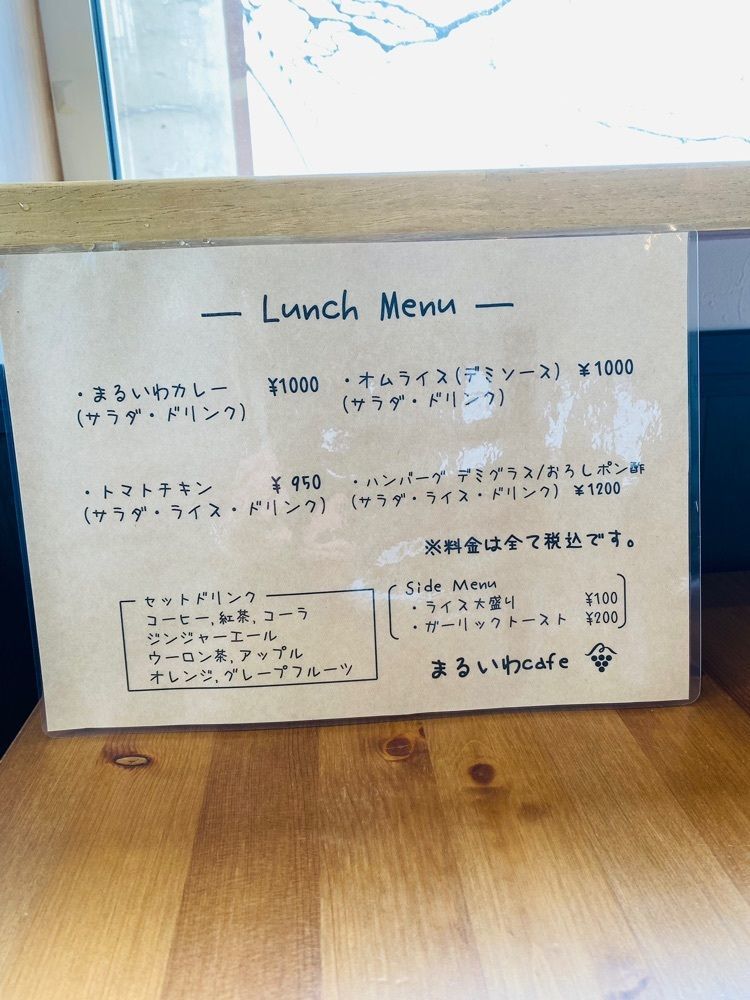 — Lunch Menu —
・まるいわカレー ¥1000
(サラダ・ドリンク)
・オムライス(デミソース) ¥1000
(サラダ・ドリンク)
・トマトチキン ¥950
(サラダ・ライス・ドリンク)
・ハンバーグ デミグラス/おろしポン酢
(サラダ・ライス・ドリンク) ¥1200
※料金は全て税込です。
セットドリンク
コーヒー, 紅茶, コーラ
ジンジャーエール
ウーロン茶, アップル
オレンジ, グレープフルーツ
Side Menu
・ライス大盛り ¥100
・ガーリックトースト ¥200
まるいわcafe